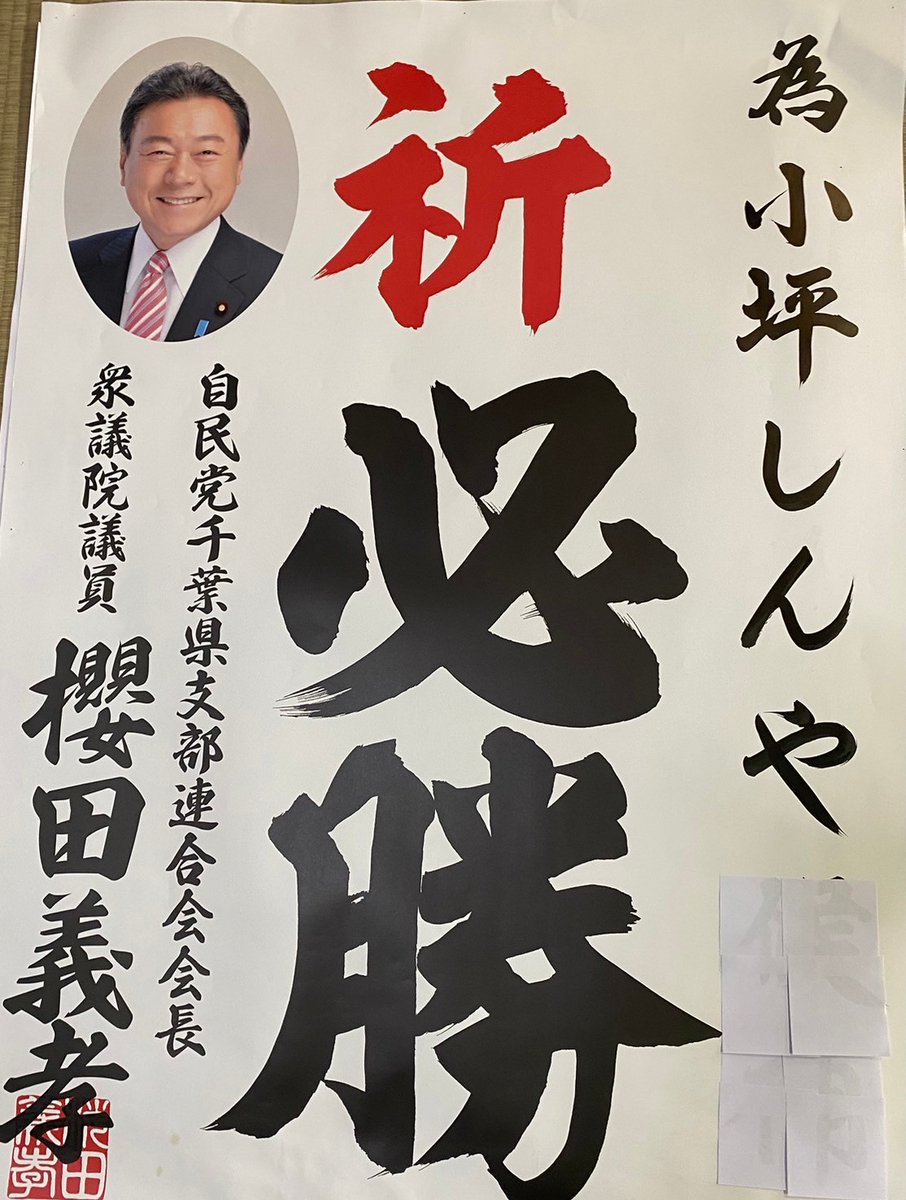 為小坪しんや
祈必勝
自民党千葉県支部連合会会長
衆議院議員 櫻田義孝